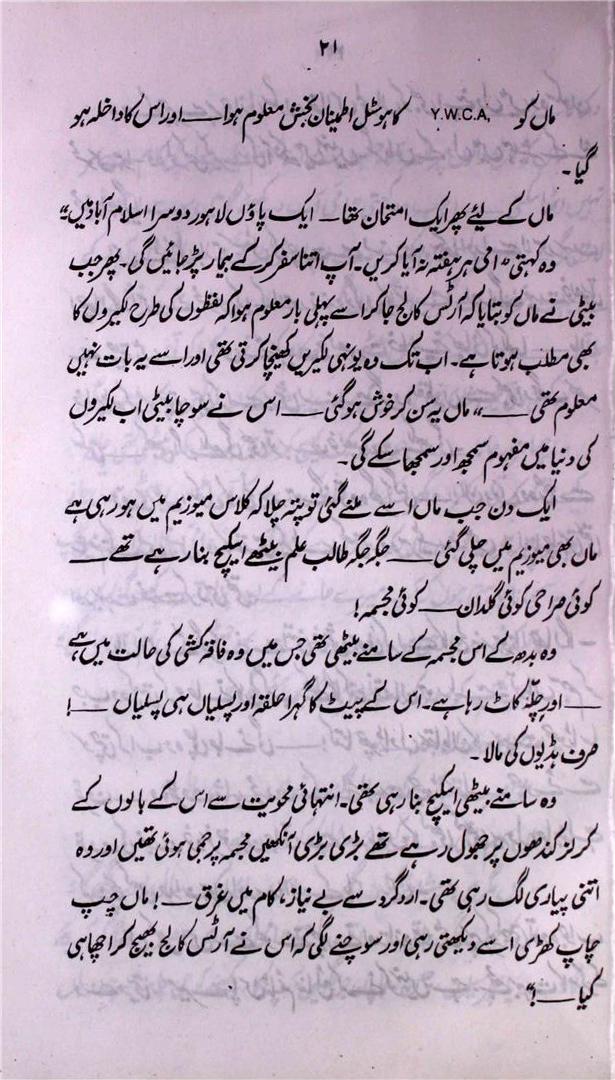 ۲۱
ماں کو Y.W.C.A. کا ہوسٹل اطمینان بخش معلوم ہوا — اور اس کا داخلہ ہو
گیا۔
ماں کے لیئے پھر ایک امتحان تھا — ایک پاؤں لاہور دوسرا اسلام آباد میں۔"
وہ کہتی "امی ہر ہفتہ نہ آیا کریں۔ آپ اتنا سفر کر کے بیمار پڑ جائیں گی۔ پھر جب
بیٹی نے ماں کو بتایا کہ آرٹس کالج جا کر اسے پہلی بار معلوم ہوا کہ لفظوں کی طرح لکیروں کا
بھی مطلب ہوتا ہے۔ اب تک وہ یونہی لکیریں کھینچا کرتی تھی اور اسے یہ بات نہیں
معلوم تھی —" ماں یہ سن کر خوش ہو گئی — اس نے سوچا بیٹی اب لکیروں
کی دنیا میں مفہوم سمجھ اور سمجھا سکے گی۔
ایک دن جب ماں اسے ملنے گئی تو پتہ چلا کہ کلاس میوزیم میں ہو رہی ہے
ماں بھی میوزیم میں چلی گئی — جگہ جگہ طالب علم بیٹھے اسکیچ بنا رہے تھے —
کوئی صراحی کوئی گلدان — کوئی مجسمہ!
وہ بدھ کے اس مجسمہ کے سامنے بیٹھی تھی جس میں وہ فاقہ کشی کی حالت میں ہے
— اور چلّہ کاٹ رہا ہے۔ اس کے پیٹ کا گہرا حلقہ اور پسلیاں ہی پسلیاں —!
صرف ہڈیوں کی مالا۔
وہ سامنے بیٹھی اسکیچ بنا رہی تھی۔ انتہائی محویت سے اس کے بالوں کے
کرلز کندھوں پر جھول رہے تھے بڑی بڑی آنکھیں مجسمہ پر جمی ہوئی تھیں اور وہ
اتنی پیاری لگ رہی تھی۔ ارد گرد سے بے نیاز، کام میں غرق —! ماں چپ
چاپ کھڑی اسے دیکھتی رہی اور سوچنے لگی کہ اس نے آرٹس کالج بھیج کر اچھا ہی
کیا —!"